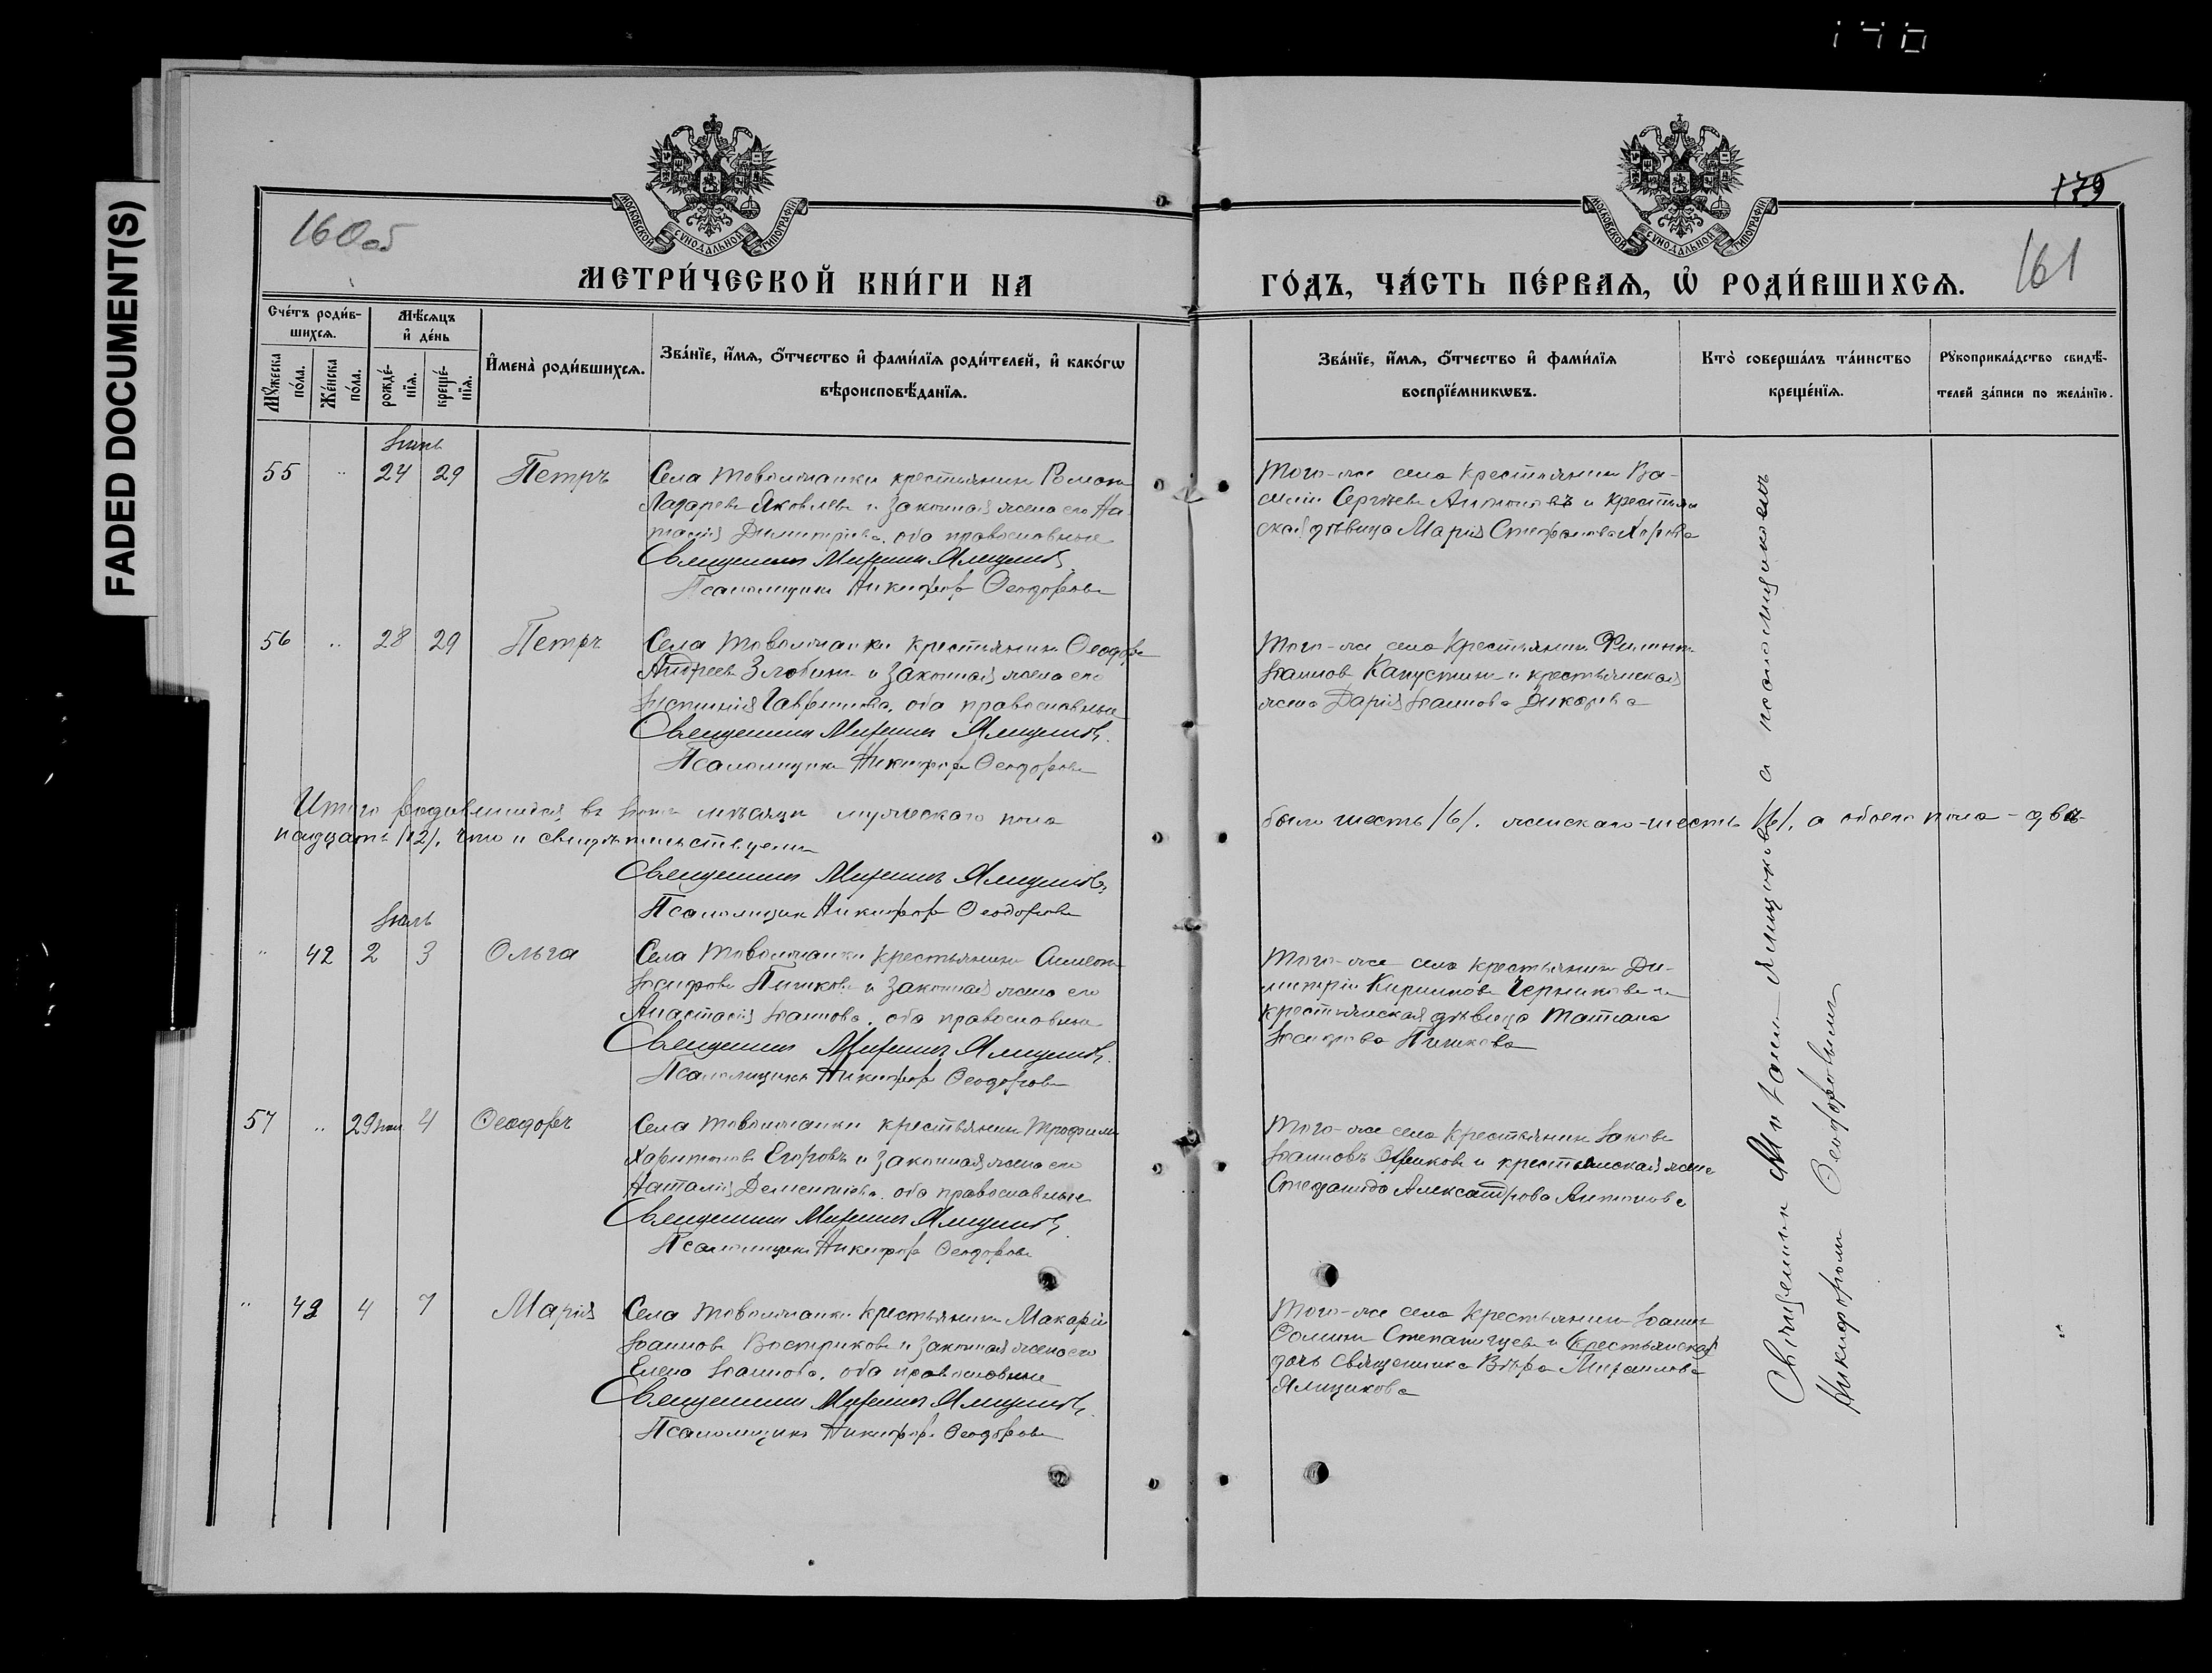 FADED DOCUMENT(S)
160об
179
161
МОСКОВСКОЙ СѴНОДАЛЬНОЙ ТИПОГРАФІИ
МОСКОВСКОЙ СѴНОДАЛЬНОЙ ТИПОГРАФІИ
МЕТРИ́ЧЕСКОЙ КНИ́ГИ НА
ГО́ДЪ, ЧА́СТЬ ПЕ́РВАѦ, Ѡ҆ РОДИ́ВШИХСѦ.
Сче́тъ роди́в-
шихсѧ.
Мꙋ́жеска по́ла.
Же́нска по́ла.
Мѣ́сѧцъ
и҆ де́нь
рожде́-
нїѧ.
креще́-
нїѧ.
И҆мена̀ роди́вшихсѧ.
Зва́нїе, и҆́мѧ, ѻ҆́тчество и҆ фами́лїѧ роди́телей, и҆ како́гѡ
вѣроисповѣ́данїѧ.
Зва́нїе, и҆́мѧ, ѻ҆́тчество и҆ фами́лїѧ
воспрїе́мникѡвъ.
Кто̀ соверша́лъ та́инство
креще́нїѧ.
Рꙋкоприкла́дство свидѣ́-
телей за́писи по жела́нїю.
Іюнь
55 " 24 29 Петръ
Села Товолжанки крестьянинъ Романъ
Лазаревъ Яковлевъ и законная жена его На
талія Димитріева, оба православные
Священникъ Михаилъ Ямщиковъ
Псаломщикъ Никифоръ Ѳеодоровъ
Того-же села крестьянинъ Ва-
силій Сергѣевъ Антоновъ и крестьян
ская дѣвица Марія Стефанова
56 " 28 29 Петръ
Села Товолжанки крестьянинъ Ѳеодоръ
Андреевъ Злобинъ и законная жена его
Гавриилова, оба православные
Священникъ Михаилъ Ямщиковъ.
Псаломщикъ Никифоръ Ѳеодоровъ
Того-же села крестьянинъ Филиппъ
Іоанновъ Капустинъ и крестьянская
жена Дарія Іоаннова
Итого родившихся въ Іюнѣ мѣсяцѣ мужескаго пола
было шесть /6/, женскаго-шесть /6/, а обоего пола - двѣ-
надцать /12/, что и свидѣтельствуемъ
Священникъ Михаилъ Ямщиковъ,
Псаломщикъ Никифоръ Ѳеодоровъ
Іюль
" 42 2 3 Ольга
Села Товолжанки крестьянинъ Симеонъ
Іосифовъ Пашковъ и законная жена его
Анастасія Іоаннова, оба православные
Священникъ Михаилъ Ямщиковъ.
Псаломщикъ Никифоръ Ѳеодоровъ
Того-же села крестьянинъ Ди-
митрій Кирилловъ Черниковъ и
крестьянская дѣвица Татіана
Іосифова
57 " 29 іюн 4 Ѳеодоръ
Села Товолжанки крестьянинъ Трофимъ
Харитоновъ Егоровъ и законная жена его
Наталія Дементіева, оба православные
Священникъ Михаилъ Ямщиковъ,
Псаломщикъ Никифоръ Ѳеодоровъ
Того-же села крестьянинъ Іаковъ
Іоанновъ и крестьянская жена
Стефанида Александрова Антонова
" 43 4 7 Марія
Села Товолжанки крестьянинъ Макарій
Іоанновъ Востриковъ и законная жена его
Елена Іоаннова, оба православные
Священникъ Михаилъ Ямщиковъ.
Псаломщикъ Никифоръ Ѳеодоровъ
Того-же села крестьянинъ Іоаннъ
Ѳоминъ и крестьянская
дочь священника Вѣра Михаилова
Ямщикова
Священникъ Михаилъ Ямщиковъ съ псаломщикомъ
Никифоромъ Ѳеодоровымъ